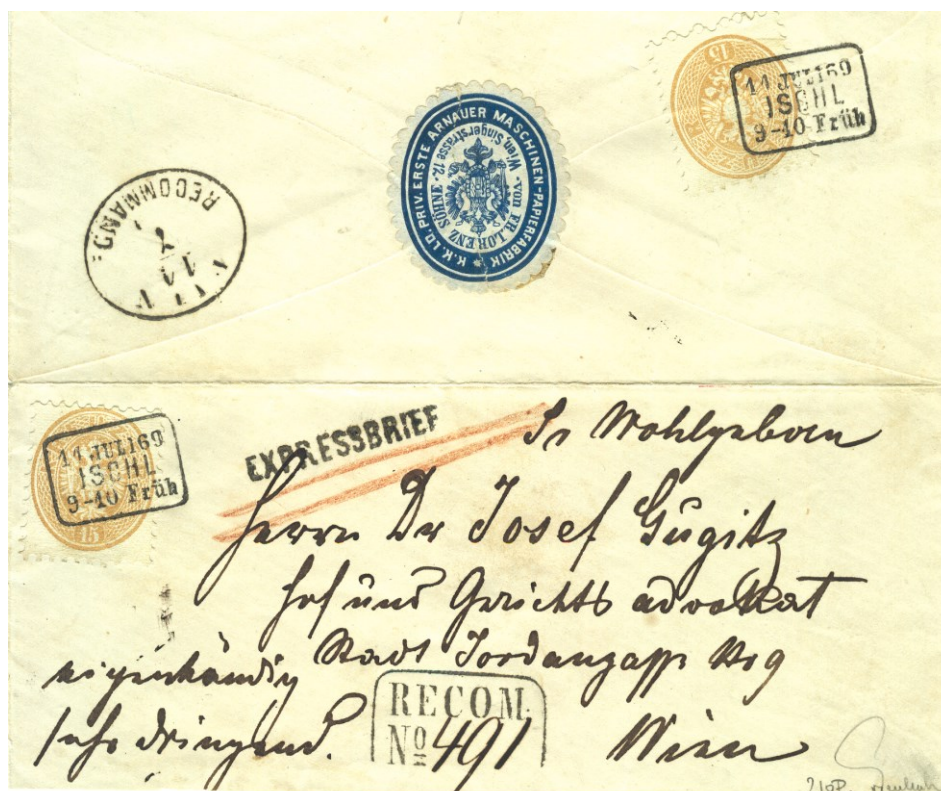 15
11 JULI 69
ISCHL
9-10 Früh
K.K. LD. PRIV. ERSTE ARNAUER MASCHINEN-PAPIERFABRIK
von FR. LORENZ SÖHNE
Wien, Singerstrasse 12.
RECOMMAND:
11
7
WIEN
11 JULI 69
ISCHL
9-10 Früh
15
EXPRESSBRIEF
Sr Wohlgeboren
Herrn Dr Josef Gugitz
Hof und Gerichts advokat
Stadt Jordangasse No 9
eigenhändig
sehr dringend.
RECOM.
No 491
Wien